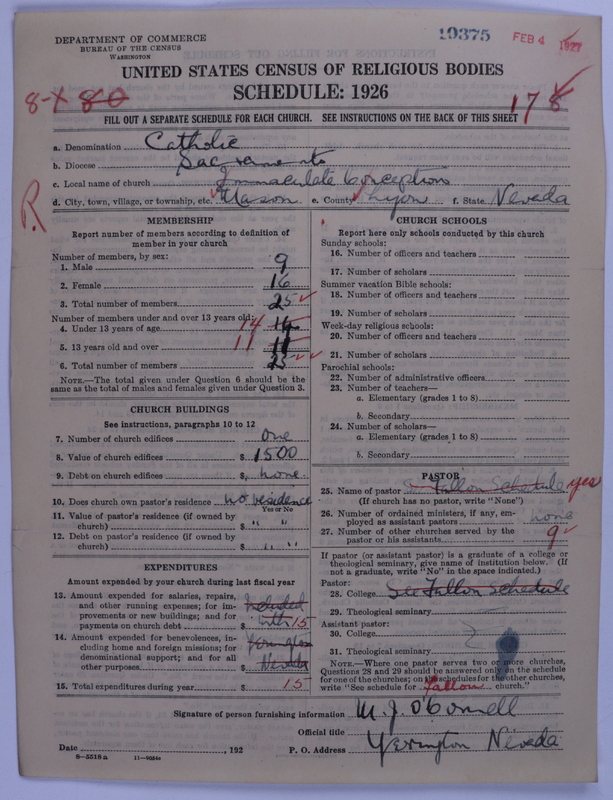 DEPARTMENT OF COMMERCE
BUREAU OF THE CENSUS
WASHINGTON
19375
FEB 4 1927
UNITED STATES CENSUS OF RELIGIOUS BODIES
SCHEDULE: 1926
8-
80
178
FILL OUT A SEPARATE SCHEDULE FOR EACH CHURCH. SEE INSTRUCTIONS ON THE BACK OF THIS SHEET
a. Denomination Catholic
b. Diocese Sacramento
c. Local name of church Immaculate Conception
d. City, town, village, or township, etc. Mason e. County Lyon f. State Nevada
R
MEMBERSHIP
Report number of members according to definition of
member in your church
Number of members, by sex:
1. Male 9
2. Female 16
3. Total number of members 25
Number of members under and over 13 years old:
4. Under 13 years of age 14
5. 13 years old and over 11 11
6. Total number of members 25
NOTE.—The total given under Question 6 should be
same as the total of males and females given under Question 3.
CHURCH BUILDINGS
See instructions, paragraphs 10 to 12
7. Number of church edifices one
8. Value of church edifices $ 1500
9. Debt on church edifices $ none.
10. Does church own pastor's residence no residence
Yes or No
11. Value of pastor's residence (if owned by
church) $ " "
12. Debt on pastor's residence (if owned by
church) $ " "
EXPENDITURES
Amount expended by your church during last fiscal year
13. Amount expended for salaries, repairs,
and other running expenses; for im-
provements or new buildings; and for
payments on church debt $ Included with 15
14. Amount expended for benevolences, in-
cluding home and foreign missions; for
denominational support; and for all
other purposes $ Yerington Nevada
15. Total expenditures during year $ 15
CHURCH SCHOOLS
Report here only schools conducted by this church
Sunday schools:
16. Number of officers and teachers
17. Number of scholars
Summer vacation Bible schools:
18. Number of officers and teachers
19. Number of scholars
Week-day religious schools:
20. Number of officers and teachers
21. Number of scholars
Parochial schools:
22. Number of administrative officers
23. Number of teachers—
a. Elementary (grades 1 to 8)
b. Secondary
24. Number of scholars—
a. Elementary (grades 1 to 8)
b. Secondary
PASTOR
25. Name of pastor Fallon Schedule yes
(If church has no pastor, write "None")
26. Number of ordained ministers, if any, em-
ployed as assistant pastors none
27. Number of other churches served by the
pastor or his assistants 9
If pastor (or assistant pastor) is a graduate of a college or
theological seminary, give name of institution below. (If
not a graduate, write "No" in the space indicated.)
Pastor:
28. College See Fallon Schedule
29. Theological seminary
Assistant pastor:
30. College
31. Theological seminary
NOTE.—Where one pastor serves two or more churches,
Questions 28 and 29 should be answered only on the schedule
for one of the churches; on the schedules for the other churches,
write "See schedule for Fallon church."
Signature of person furnishing information M. J. O'Connell
Official title
Date , 192
P. O. Address Yerington Nevada
8-5518a